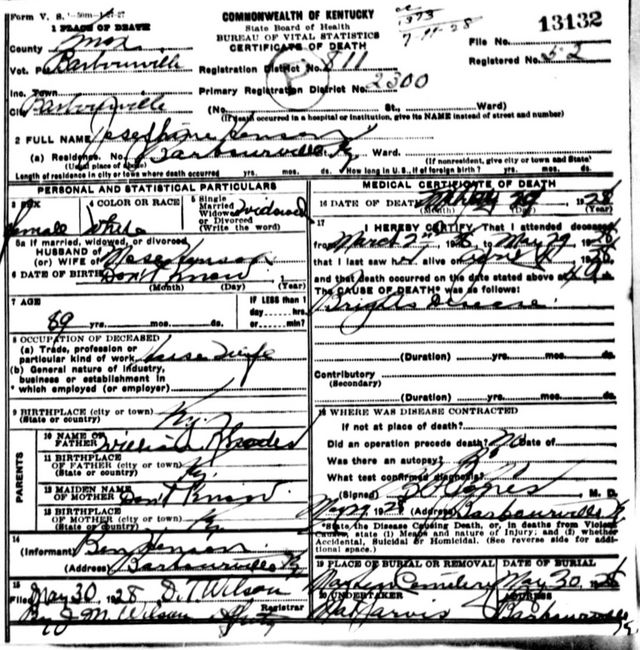 Form V. S.
COMMONWEALTH OF KENTUCKY
State Board of Health
BUREAU OF VITAL STATISTICS
CERTIFICATE OF DEATH
1 PLACE OF DEATH
7-11-28
File No. 13132
Registered No. 52
County Knox
Vot. Barbourville
Registration District No. 811
Inc. Town
Primary Registration District No. 2300
City Barbourville
(No. St., Ward)
(If death occurred in a hospital or institution, give its NAME instead of street and number)
2 FULL NAME Josephine Henson
(a) Residence. No. Barbourville Ky Ward.
(Usual place of abode) (If nonresident, give city or town and State)
Length of residence in city or town where death occurred yrs. mos. ds. How long in U. S., if of foreign birth? yrs. mos. ds.
PERSONAL AND STATISTICAL PARTICULARS
3 SEX Female
4 COLOR OR RACE White
5 Single Married Widowed Divorced (Write the word) Widowed
5a If married, widowed, or divorced
HUSBAND of
(or) WIFE of Henson
6 DATE OF BIRTH Don't Know
(Month) (Day) (Year)
7 AGE
89 yrs. mos. ds.
IF LESS than 1 day hrs. or min.?
8 OCCUPATION OF DECEASED
(a) Trade, profession or particular kind of work House Wife
(b) General nature of industry, business or establishment in which employed (or employer)
9 BIRTHPLACE (city or town) Ky.
(State or country)
PARENTS
10 NAME OF FATHER William Rhodes
11 BIRTHPLACE OF FATHER (city or town) Ky.
(State or country)
12 MAIDEN NAME OF MOTHER Don't Know.
13 BIRTHPLACE OF MOTHER (city or town) Ky
(State or country)
14
(Informant) Ben Henson
(Address) Barbourville Ky
15
Filed May 30 1928 D. T. Wilson
Registrar
By J. M. Wilson Dpty
MEDICAL CERTIFICATE OF DEATH
16 DATE OF DEATH May 29 1928
(Month) (Day) (Year)
17
I HEREBY CERTIFY, That I attended deceased
from March 2, 1928, to May 29 1928
that I last saw her alive on 1928
and that death occurred on the date stated above at
The CAUSE OF DEATH* was as follows:
Brights disease.
(Duration) yrs. mos. ds.
Contributory
(Secondary)
(Duration) yrs. mos. ds.
18 WHERE WAS DISEASE CONTRACTED
If not at place of death?
Did an operation precede death? No Date of
Was there an autopsy?
What test confirmed diagnosis?
(Signed) Jones M. D.
May 29 1928 (Address) Barbourville Ky
*State the Disease Causing Death, or, in deaths from Violent
Causes, state (1) Means and nature of Injury; and (2) whether
Accidental, Suicidal or Homicidal. (See reverse side for additional space.)
19 PLACE OF BURIAL OR REMOVAL
Cemetery
DATE OF BURIAL
May 30 1928
20 UNDERTAKER
Jarvis
ADDRESS
Barbourville
Ky.